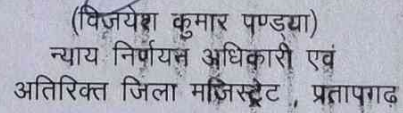 (विजयेश कुमार पण्डया)
न्याय निर्णयन अधिकारी एवं
अतिरिक्त जिला मजिस्ट्रेट , प्रतापगढ